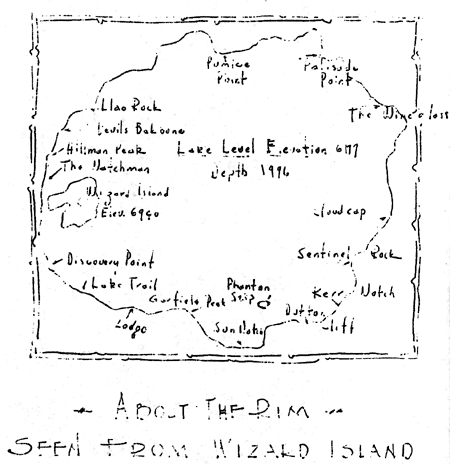 Pumice
Point
Palisade
Point
Llao Rock
The Wineglass
Devils Backbone
Hillman Peak
Lake Level Elevation 6177
The Watchman
Depth 1996
Wizard Island
Elev. 6940
Cloudcap
Discovery Point
Sentinel Rock
Lake Trail
Phantom
Ship
Kerr Notch
Garfield Peak
Dutton
Cliff
Lodge
Sun Notch
About The Rim
Seen From Wizard Island